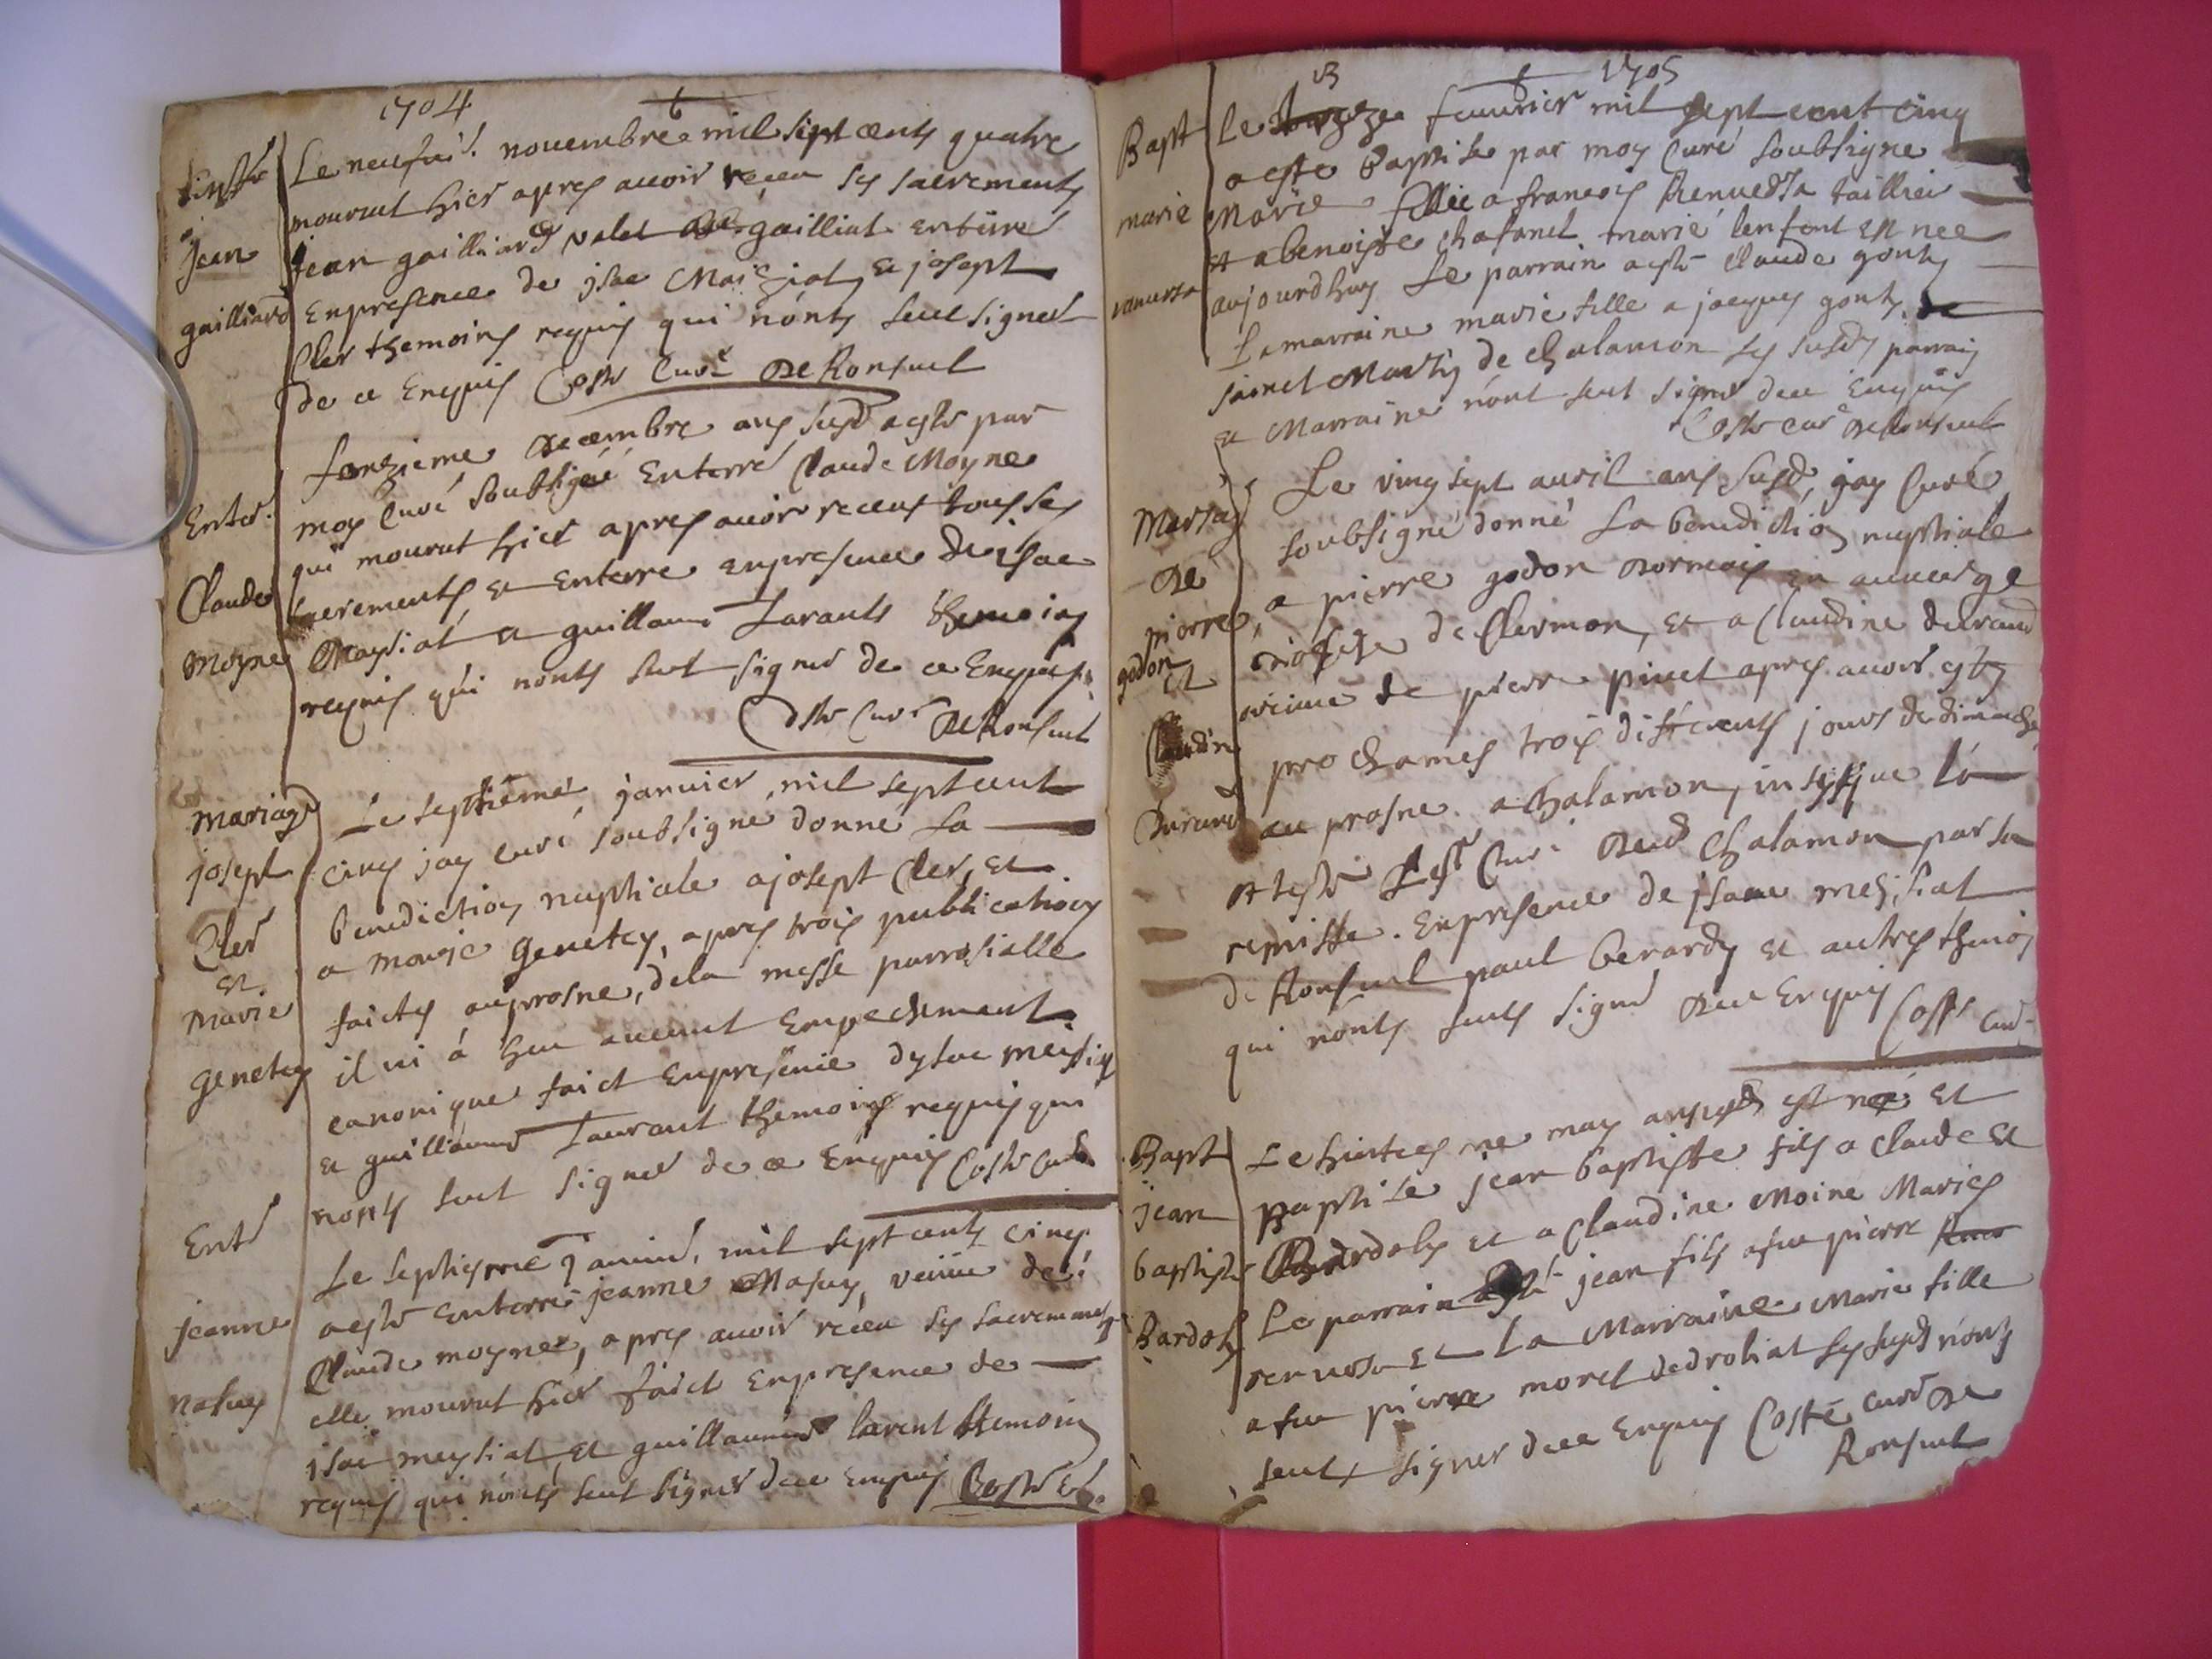 1704
Le neufui. nouembre mil sept cents quatre
mourut hier apres auoir receu ses sacrements
jean gailliard valet gailliat enterré
Enpresence de jsac et josept
Cler themoins requis qui nonts sceut signer
de ce Enquis Coste Curé De Ronsuel
Jean
gailliard
decembre ans susd aeste par
moy Curé soubsigné Enterré Claude Moyne
qui mourut hier apres auoir receus tous ses
sacrements et Enterre enpresence de isac
Maysiat et guillaume Laurants themoins
requis qui nonts sceut signer de ce Enquis
Coste Curé De Ronsuel
Enter.
Claude
Moyne
Le septieme januier mil sept cent
cinq jay curé soubsigné donné la
benediction nuptiale a josept Cler, et
a marie Genetey, apres trois publications
faictes auprosne, dela messe parrosialle
il ni a heu aucunt Empechement
canonique faict Enpresence dysac
et guillaume Laurant themoins requis qui
nonts sceut signer de ce Enquis Coste Curé
mariage
josept
Cler
et
Marie
Genetey
Le septiesme januier, mil sept cents cinq
aeste enterré jeanne Nasuy, veuue de
Claude moyne, apres auoir receu ses sacremants
elle mourut hier faict Enpresence de
jsac meysiat et guillaume larent themoins
requis qui nonts sceut signer dece enquis Coste Cu.
Ent
jeanne
nasuy
1705
13
Le feurier mil sept cent cinq
aeste Baptisée par moy Curé soubsigné
Marie fillie a francois Renuersa taillieur
et abenoiste chafanel marié lenfant est nee
aujourdhuy Le parrain aeste Claude gonty
Lamarraine marie fille a jacques gonty de
sainct Martin de chalamon les susds parrain
et Marraine n'ont sceut signer dece Enquis
Coste Curé de Ronsuel
Bapt
marie
Le vingsept auril ans susd, jay Curé
soubsigné donné La benediction nuptiale
a pierre godon en auuergne
de Clermon, et a Claudine durand
veuue de pierre pinet apres auoir
prochames trois differents jours de dimanche
au prosne. a Chalamon, insy que la
atesté Curé dud Chalamon par sa
remisse. Enpresence de jsaac mesiat
de Ronsuel paul berardy et autres themoins
qui nonts sceuts signer dece Enquis Coste Curé
Mariag
De
pierre
godon
et
Claudine
Durand
Le may ansusd est né et
baptisé jean baptiste fils a claude
Bardoly et a Claudine Moine Maries
Le parrain aesté jean fils afeu pierre
renuersa et La Marraine Marie fille
afeu pierre morel dedroliat les susds nonts
sceut signer dece Enquis Coste curé De
Ronsuel
Bapt
jean
baptiste
Bardoly